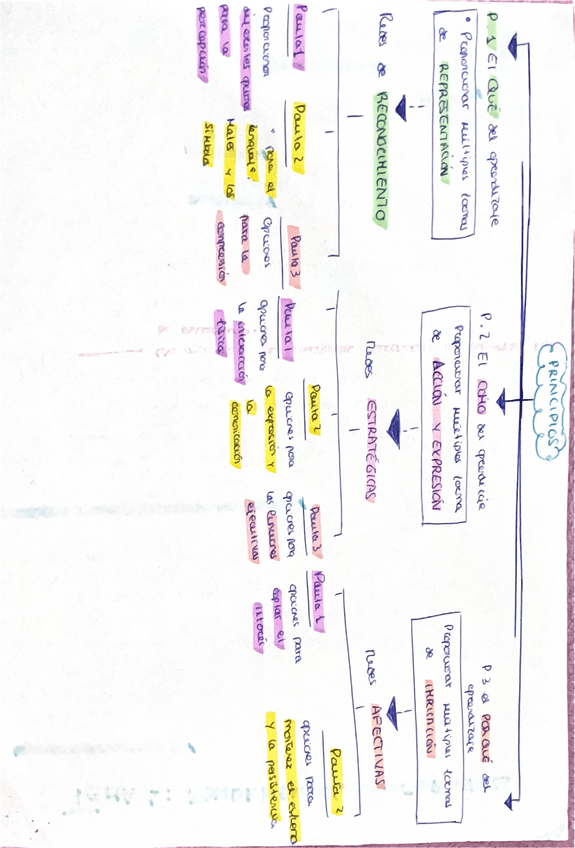 PRINCIPIOS
P.1 El QUÉ del aprendizaje
* Proporcionar múltiples formas
de REPRESENTACIÓN
Redes de RECONOCIMIENTO
Pauta 1
Proporcionar
diferentes opciones
para la
percepción
Pauta 2
* para el
lenguaje,
símbolos
Pauta 3
opciones
para la
comprensión
P.2 El CÓMO del aprendizaje
Proporcionar múltiples forma
de ACCIÓN Y EXPRESIÓN
Redes ESTRATÉGICAS
Pauta 1
opciones para
la interacción
física
Pauta 2
opciones para
la expresión y
la
comunicación
Pauta 3
opciones para
las funciones
ejecutivas
P.3 el PORQUÉ del
aprendizaje
Proporcionar múltiples formas
de IMPLICACIÓN
Redes AFECTIVAS
Pauta 1
opciones para
captar el
interés
Pauta 2
opciones para
mantener el esfuerzo
y la persistencia